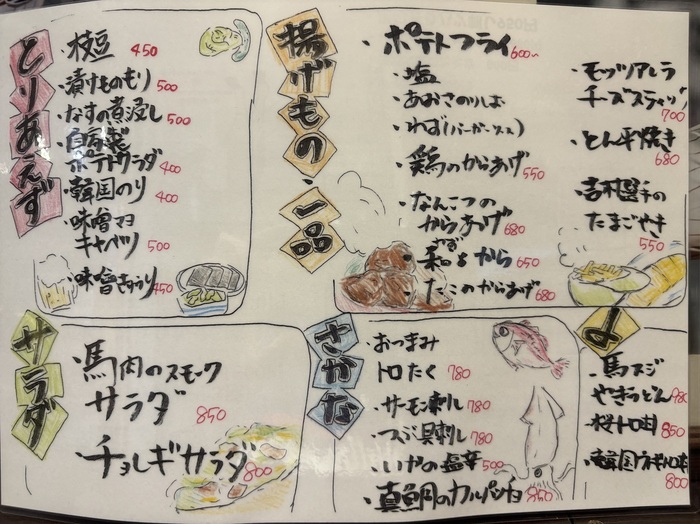 とりあえず
・枝豆 450
・漬けものもり 500
・なすの煮浸し 500
・自家製
ポテトサラダ 400
・韓国のり 400
・味噌マヨ
キャベツ 500
・味噌きゅうり 450
揚げもの・一品
・ポテトフライ 600〜
・塩
・あおさのりしお
・わさび(バーガーソース)
・鶏のからあげ 550
・なんこつの
からあげ 680
から 650
・たこのからあげ 680
・モッツアレラ
チーズスティック 700
・とん平焼き 680
・吉村選手の
たまごやき 550
サラダ
・馬肉のスモーク
サラダ 850
・チョレギサラダ 800
さかな
・おつまみ
トロたく 780
・サーモン刺し 780
・つぶ貝刺し 780
・いかの塩辛 500
・真鯛のカルパッチョ 850
・馬スジ
やきうどん 980
・桜トロ丼 850
・韓国
800